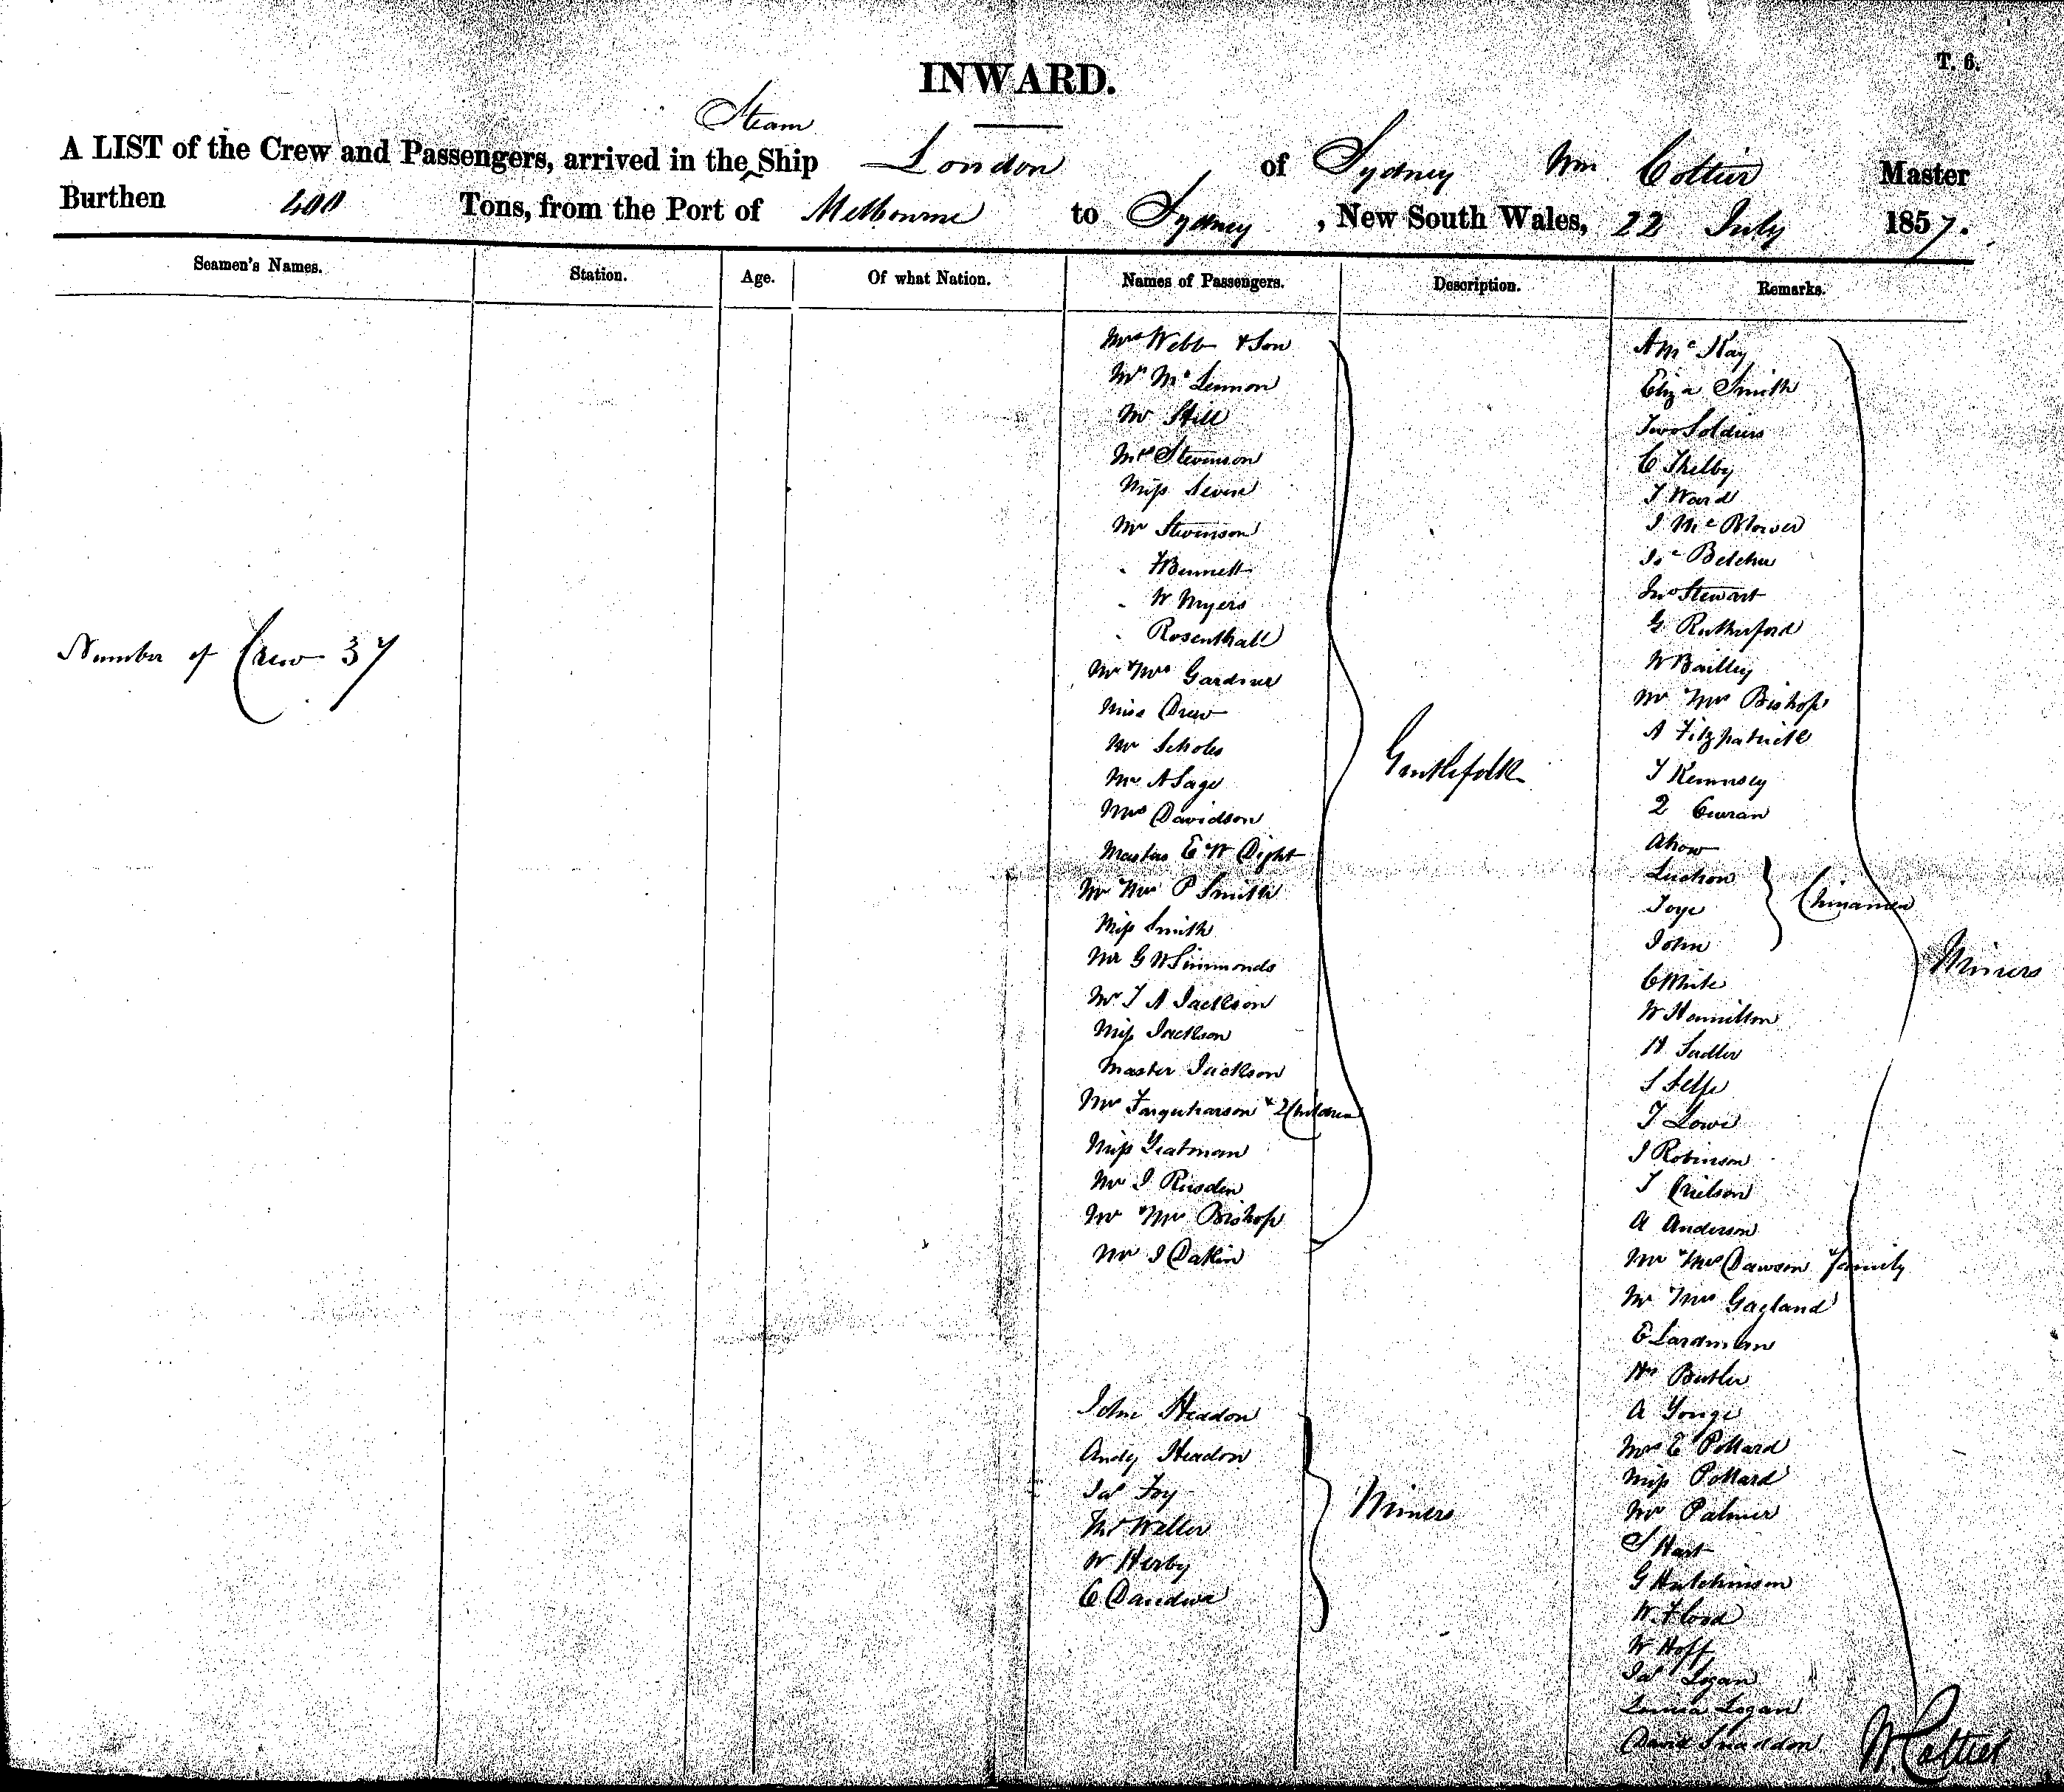 T. 6.
INWARD.
Steam
A LIST of the Crew and Passengers, arrived in the Ship London of Sydney Wm Cottier Master
Burthen 400 Tons, from the Port of Melbourne to Sydney, New South Wales, 22 July 1857.
Seamen's Names. Station. Age. Of what Nation. Names of Passengers. Description. Remarks.
Number of Crew 37
Mrs Webb & Son
Mrs McLennon
Mr Still
Mrs Stevenson
Miss
Mr Stevenson
" Bennett
" W Myers
" Rosenthall
Mr & Mrs Gardiner
Miss Drew
Mr Scholes
Mr A Sage
Mrs Davidson
Masters E & W Dight
Mr & Mrs P Smith
Miss Smith
Mr G W Simmonds
Mr T A Jackson
Miss Jackson
Master Jackson
Mrs Farquharson & 2 Children
Miss Yeatman
Mr J Rusden
Mr & Mrs Bishop
Mr J Dakin
Gentlefolk
John Headon
Andy Headon
Jas Foy
Weller
W Herby
C
Miners
A McKay
Eliza Smith
Two Soldiers
C Shelby
T Ward
J Mc
Belcher
Jno Stewart
G Rutherford
W Bailley
Mr & Mrs Bishop
A Fitzpatrick
T Kemnsey
2 Curran
Ahow
Luchon
Toye
John
Chinamen
C White
W Hamilton
H Sadler
S Selfe
T Lowe
J Robinson
T Neilson
A Anderson
Mr & Mrs Dawson & family
Mr & Mrs Gagland
E Lardman
Hy Butler
A Yonge
Mrs E Pollard
Miss Pollard
Mr Palmer
S Hart
G Hutchinson
W. Flood
W Hoff
Jas Logan
Louisa Logan
David Snaddon
Miners
W. Cottier